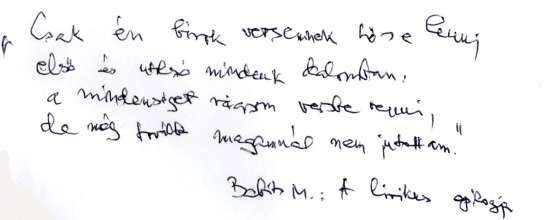 „Csak én birok versemnek hőse lenni,
első és utolsó mindenik dalomban:
a mindenséget vágyom versbe venni,
de még tovább magamnál nem jutottam."
Babits M.: A lírikus epilógja